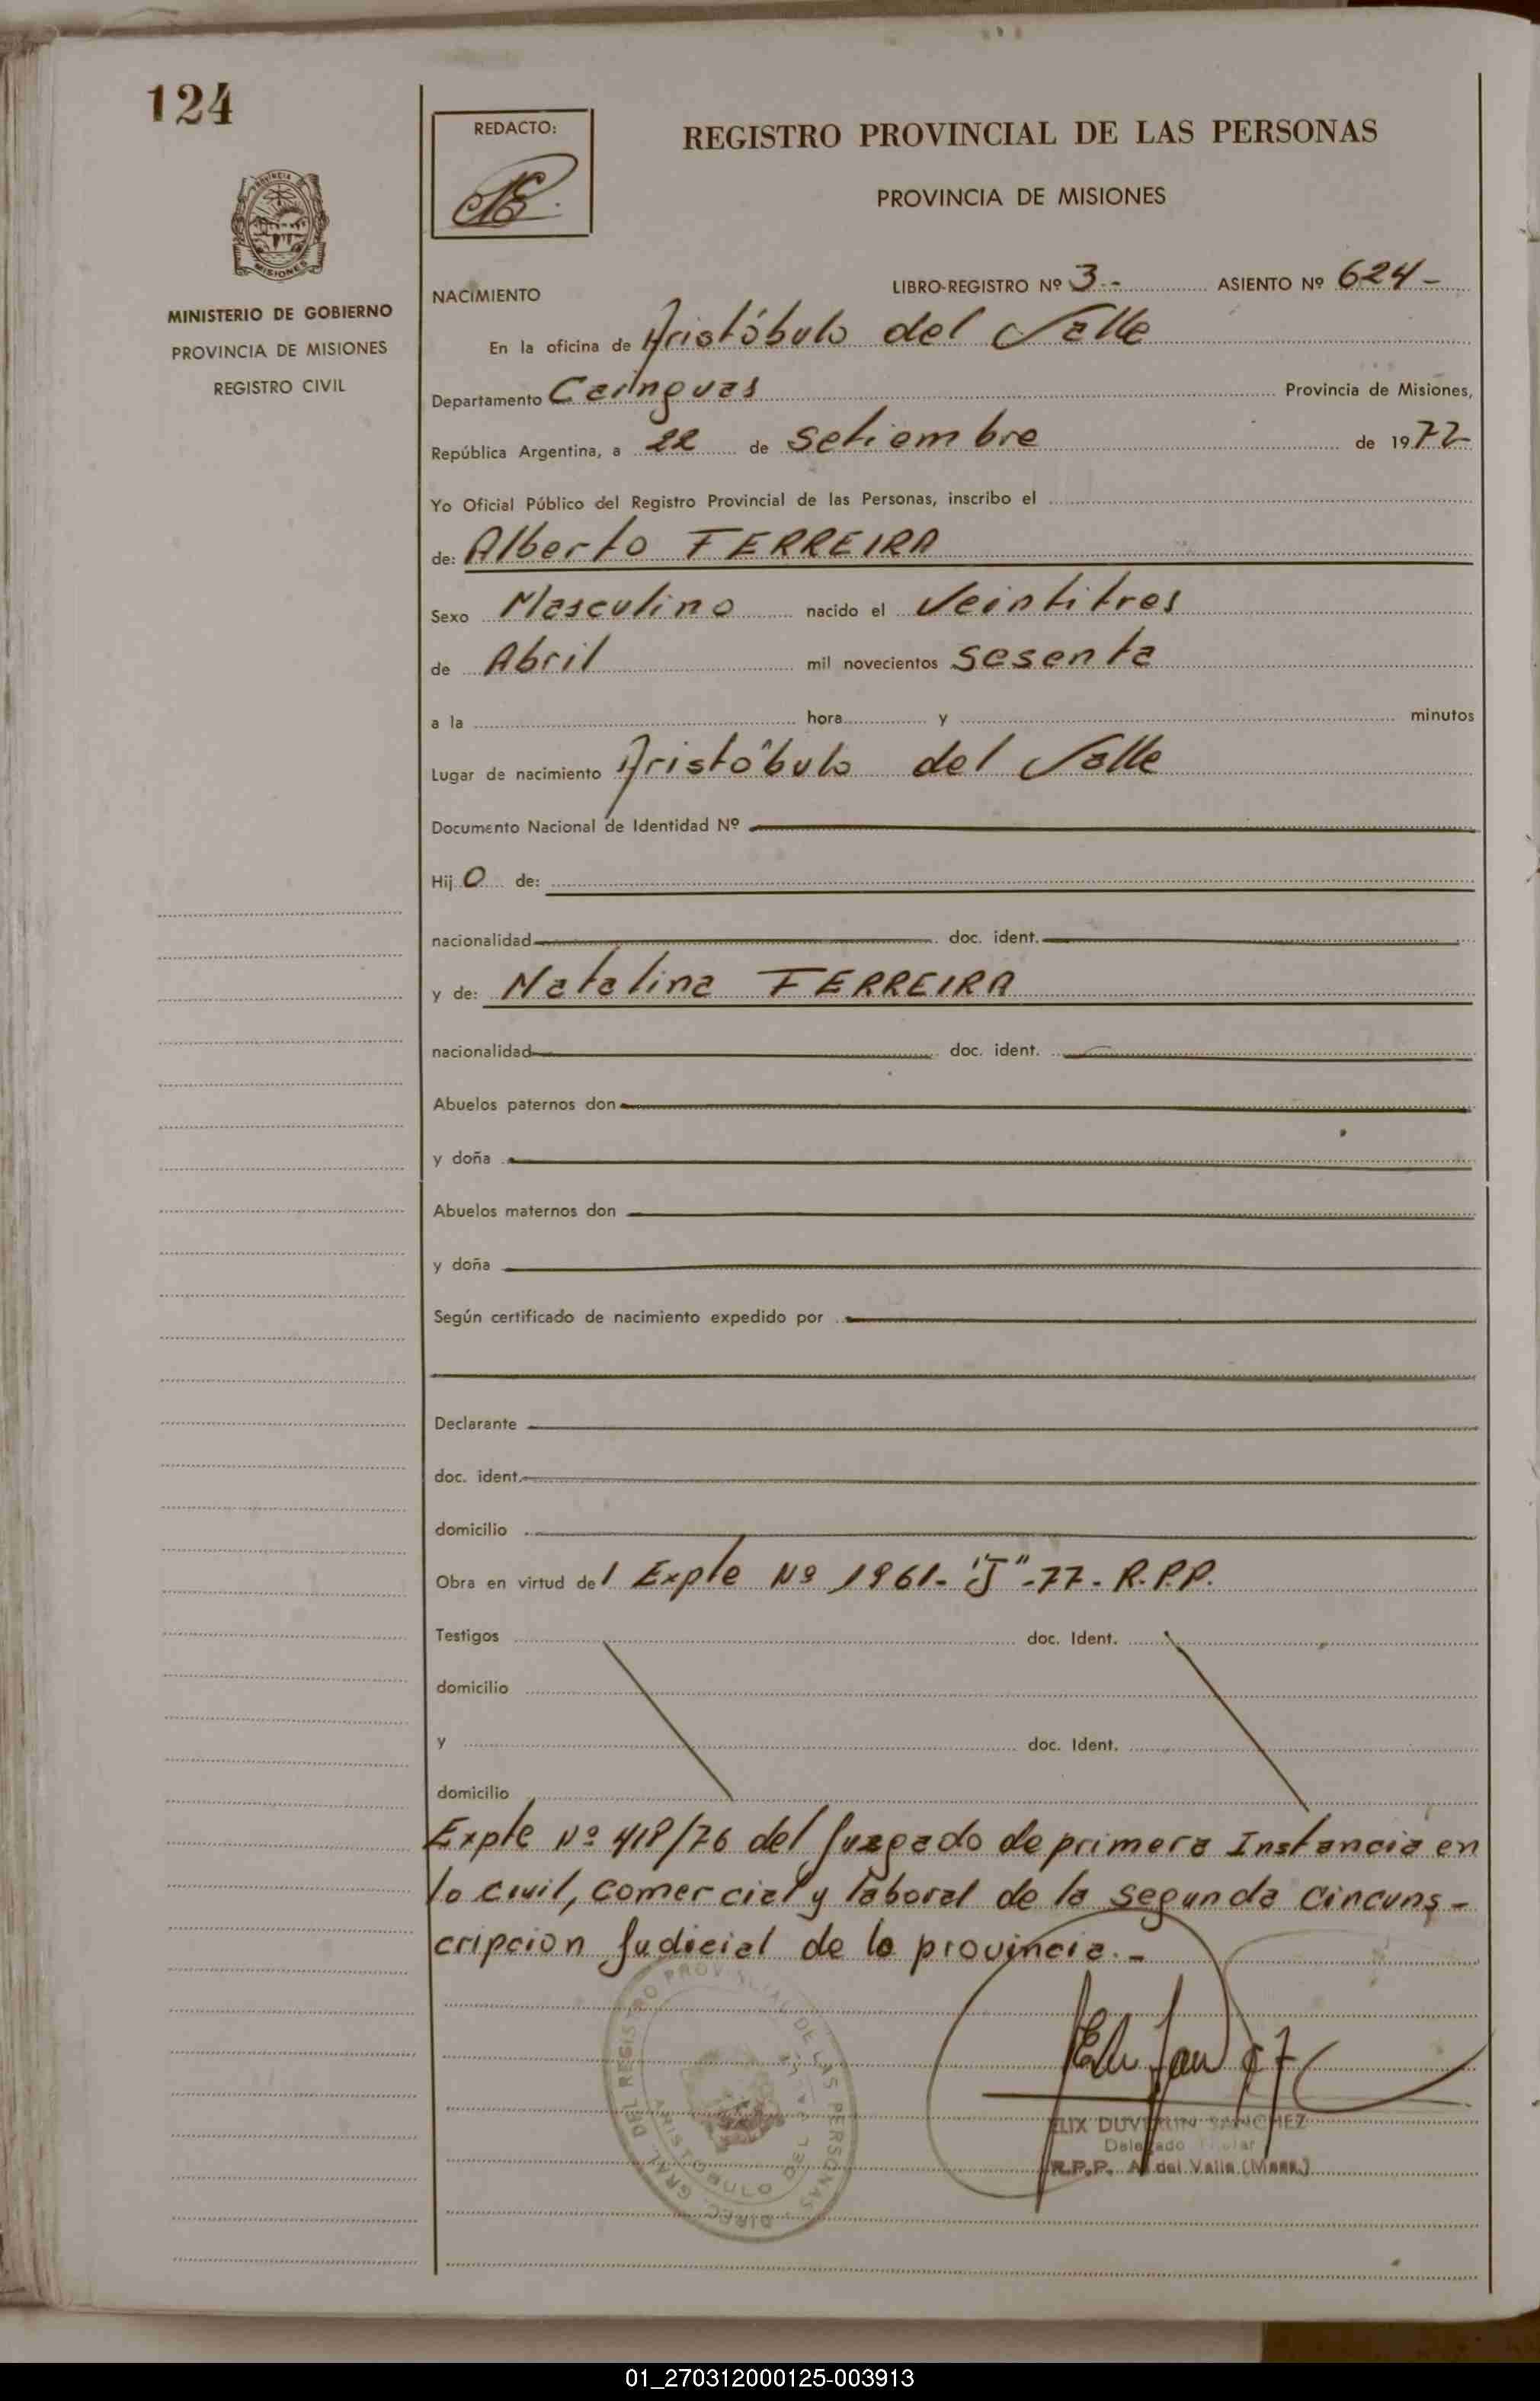 124
REDACTO:
REGISTRO PROVINCIAL DE LAS PERSONAS
PROVINCIA DE MISIONES
PROVINCIA
MISIONES
MINISTERIO DE GOBIERNO
PROVINCIA DE MISIONES
REGISTRO CIVIL
NACIMIENTO LIBRO-REGISTRO Nº 3-- ASIENTO Nº 624-
En la oficina de Aristóbulo del Valle
Departamento Cainguas Provincia de Misiones,
República Argentina, a 22 de Setiembre de 1977-
Yo Oficial Público del Registro Provincial de las Personas, inscribo el
de: Alberto FERREIRA
Sexo Masculino nacido el Veintitres
de Abril mil novecientos sesenta
a la hora y minutos
Lugar de nacimiento Aristóbulo del Valle
Documento Nacional de Identidad Nº
Hijo de:
nacionalidad doc. ident.
y de: Natalina FERREIRA
nacionalidad doc. ident.
Abuelos paternos don
y doña
Abuelos maternos don
y doña
Según certificado de nacimiento expedido por
Declarante
doc. ident.
domicilio
Obra en virtud del Expte Nº 1961-"J"-77- R.P.P.
Testigos doc. Ident.
domicilio
y doc. Ident.
domicilio
Expte Nº 418/76 del Juzgado de primera Instancia en
lo civil, comercial y laboral de la segunda Cincuns-
cripcion Judicial de la provincia.-
DIREC. GRAL. DEL REGISTRO PROVINCIAL DE LAS PERSONAS
ARISTOBULO DEL VALLE
SANCHEZ
Delegado Titular
R.P.P. A. del Valle (Mnes.)
01_270312000125-003913